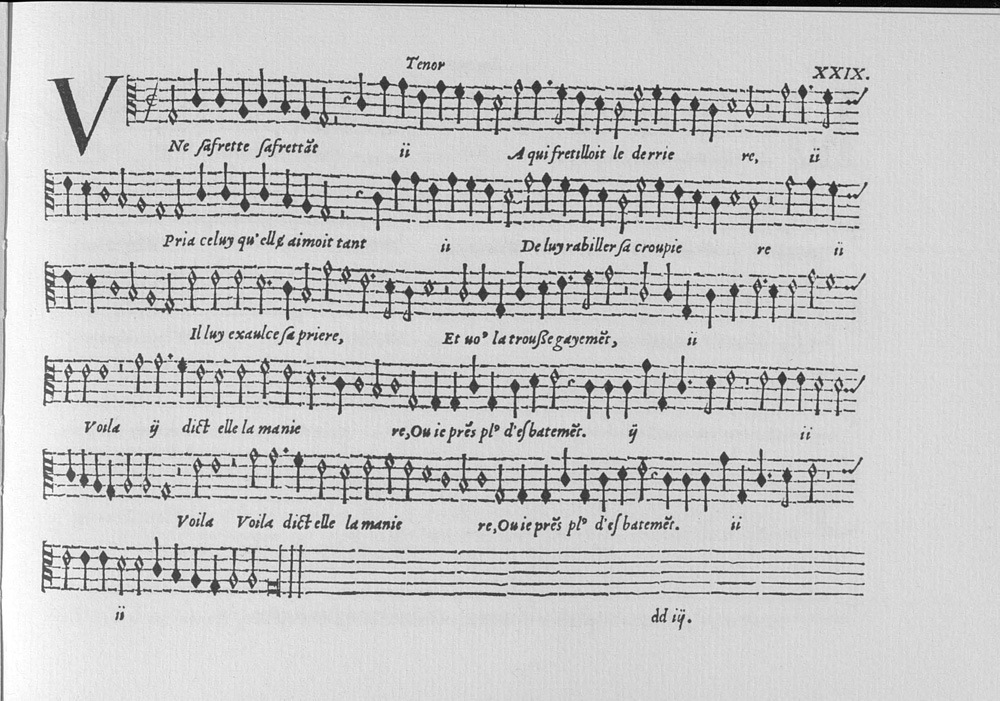 Tenor
XXIX.
VNe ſafrette ſafrettãt ii A qui fretilloit le derrie re, ii
Pria celuy qu'ellɇ aimoit tant ii De luy rabiller ſa croupie re ii
Il luy exaulce ſa priere, Et uo⁹ la trouſſe gayemẽt, ii
Voila ÿ dict elle la manie re, Ou ie prẽs pl⁹ d'eſbatemẽt. ÿ ii
Voila Voila dict elle la manie re, Ou ie prẽs pl⁹ d'eſbatemẽt. ii
ii dd iÿ.